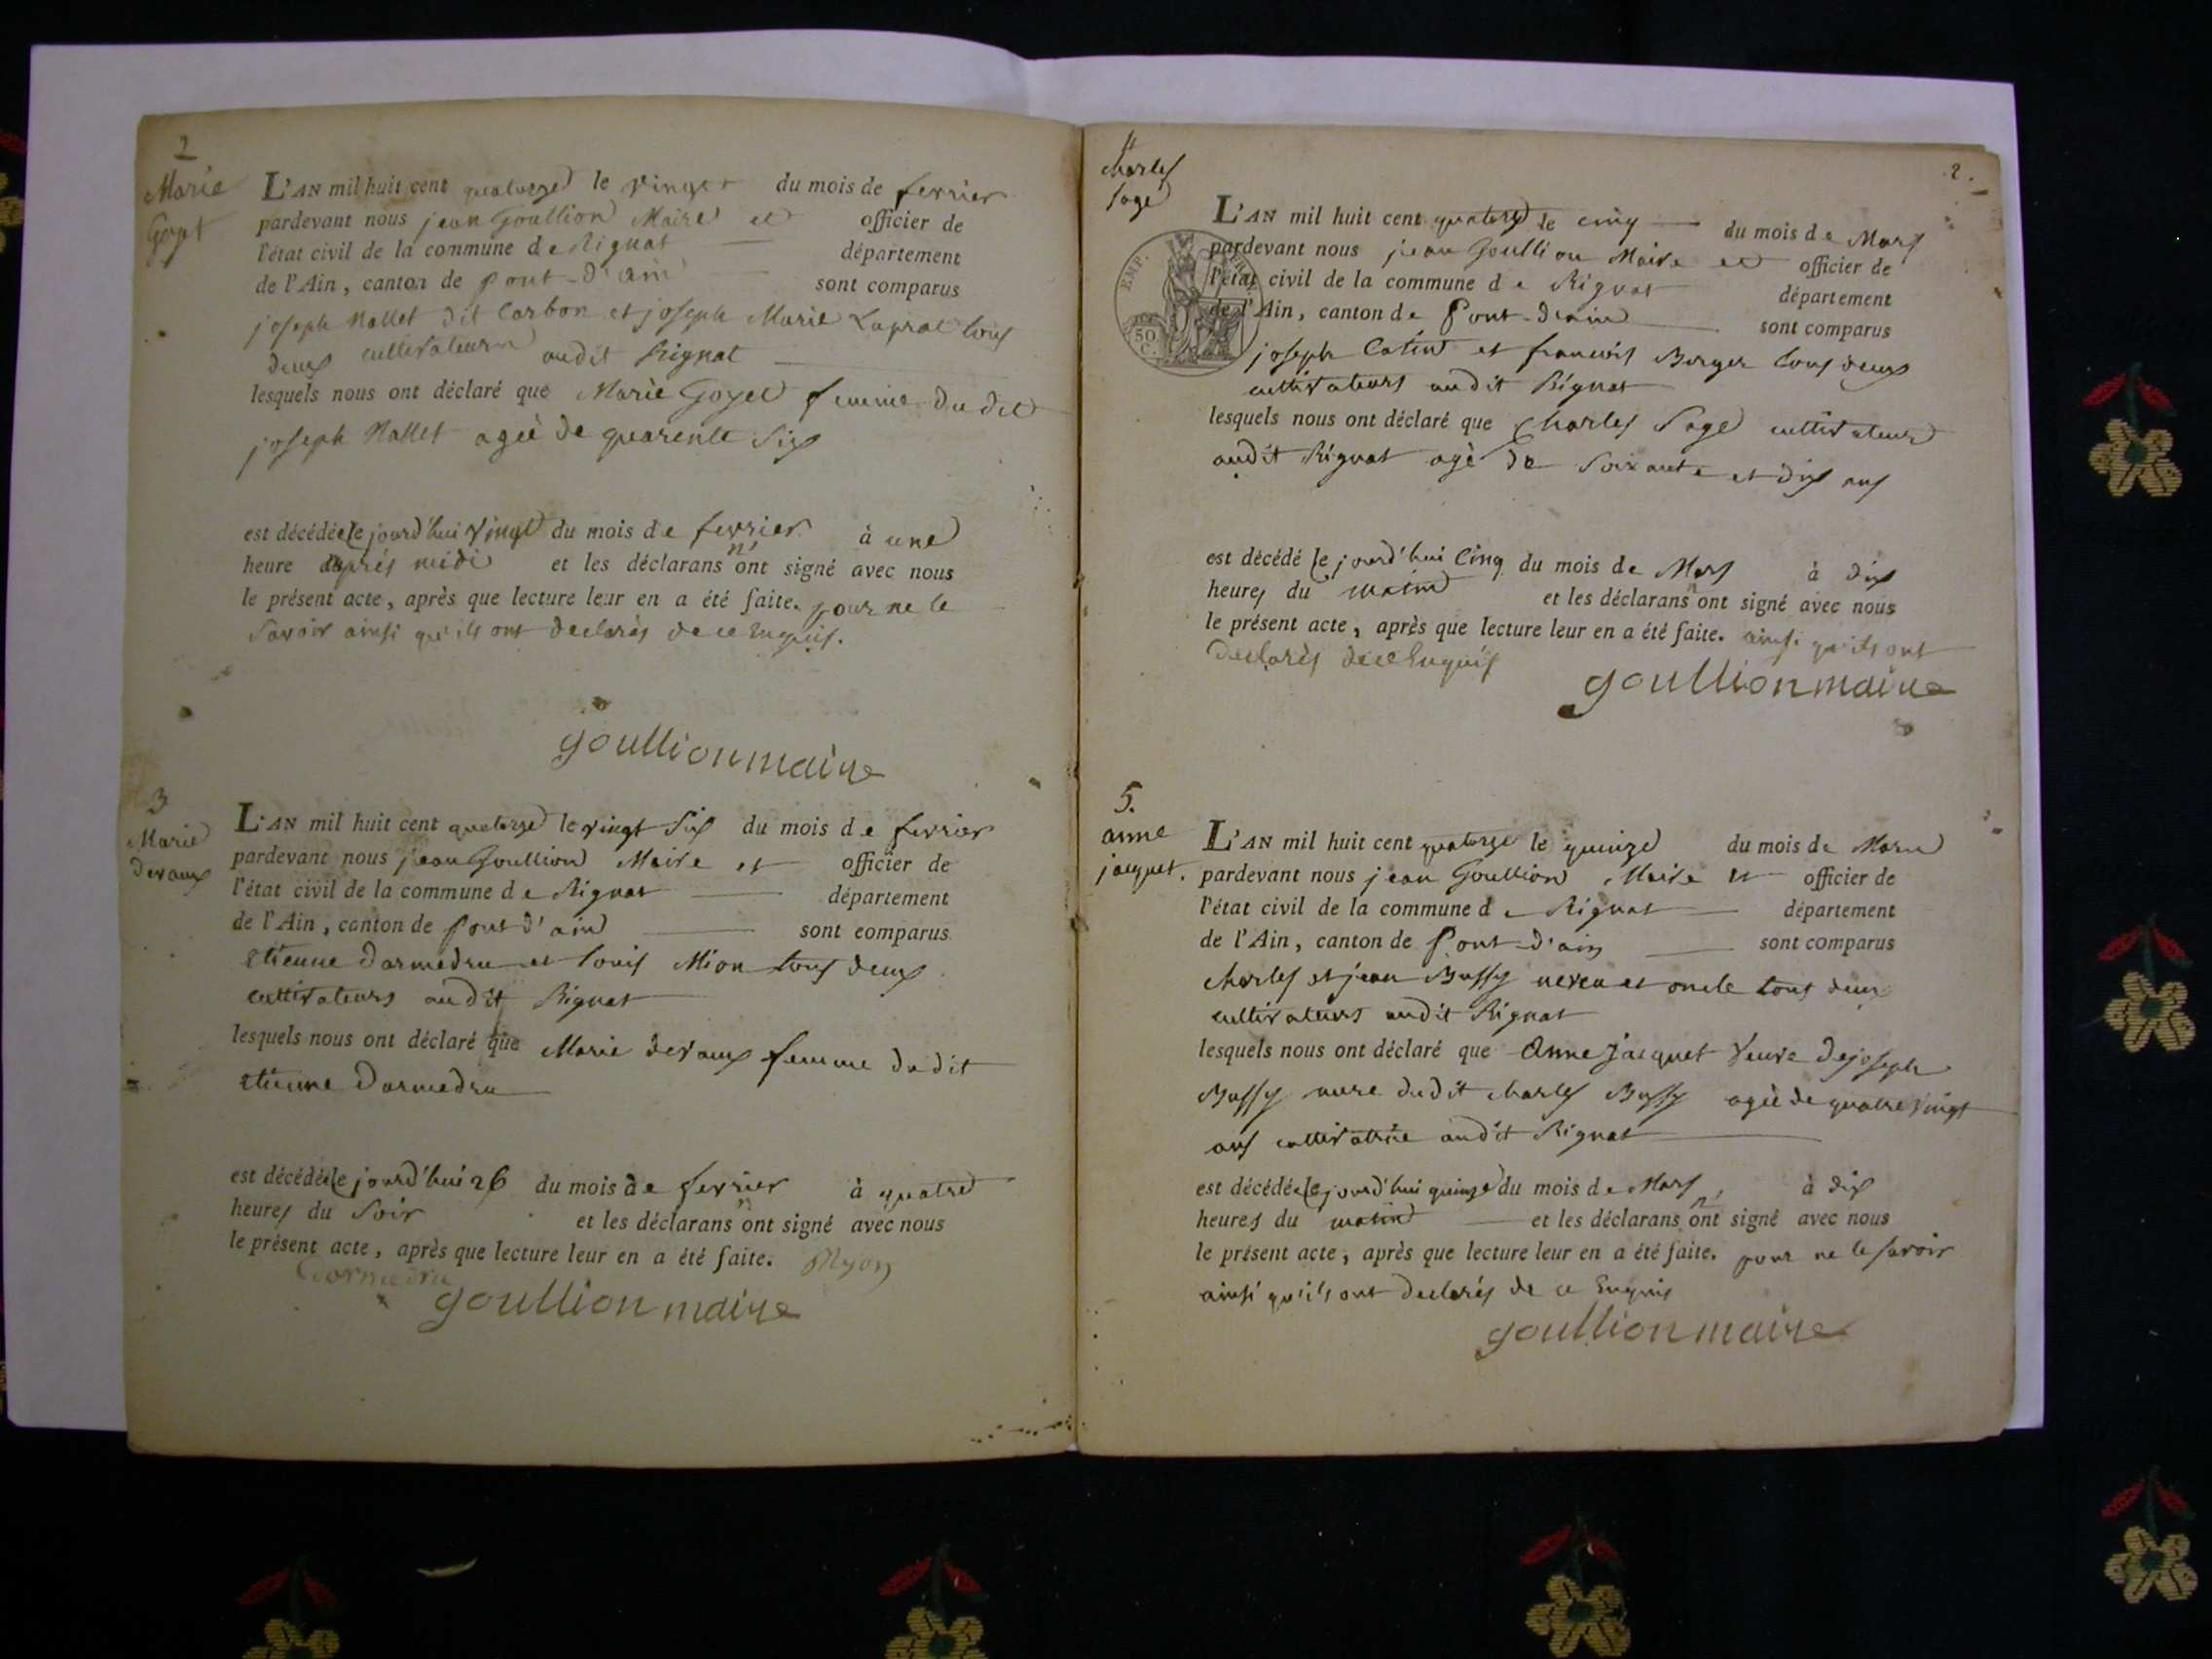 2
Marie
Goyet
L'AN mil huit cent quatorze le vingt du mois de fevrier
pardevant nous jean Goullion Maire et officier de
l'état civil de la commune de Rignat département
de l'Ain, canton de Pont-d'ain sont comparus
joseph Nallet dit Carbon et joseph Marie Lapral tous
deux cultivateurs audit Rignat
lesquels nous ont déclaré que Marie Goyet femme du dit
joseph Nallet ageé de quarente Six
est décédée le jourd'hui vingt du mois de fevrier à une
heure après midi et les déclarans n'ont signé avec nous
le présent acte, après que lecture leur en a été faite. pour ne le
Savoir ainsi qu'ils ont declarés de ce Enquis.
goullion maire
3
Marie
devaux
L'AN mil huit cent quatorze le vingt Six du mois de fevrier
pardevant nous jean Goullion Maire et officier de
l'état civil de la commune de Rignat département
de l'Ain, canton de Pont d'ain sont comparus
etienne darmedru et louis Mion tous deux
cultivateurs audit Rignat
lesquels nous ont déclaré que Marie devaux femme du dit
etienne Darmedru
est décédée le jourd'hui 26 du mois de fevrier à quatre
heures du Soir et les déclarans n ont signé avec nous
le présent acte, après que lecture leur en a été faite. Myon
Dormedru
goullion maire
4
Charles
Sage
2.
L'AN mil huit cent quatorze le cinq du mois de Mars
pardevant nous jean Goullion Maire et officier de
l'état civil de la commune de Rignat département
de l'Ain, canton de Pont-d'ain sont comparus
EMP. FRAN.
50 C.
joseph Catin et francois Berger tous deux
cultivateurs audit Rignat
lesquels nous ont déclaré que Charles Sage cultivateur
audit Rignat agé de Soixante et dix ans
est décédé le jourd'hui Cinq du mois de Mars à dix
heures du matin et les déclarans n ont signé avec nous
le présent acte, après que lecture leur en a été faite. ainsi qu'ils ont
declarés de ce Enquis
goullion maire
5.
anne
jacquet.
L'AN mil huit cent quatorze le quinze du mois de Mars
pardevant nous jean Goullion Maire et officier de
l'état civil de la commune de Rignat département
de l'Ain, canton de Pont-d'ain sont comparus
charles et jean Bussy neveu et oncle tous deux
cultivateurs audit Rignat
lesquels nous ont déclaré que Anne jacquet Veuve de joseph
Bussy mere dudit charles Bussy ageé de quatre Vingt
ans cultivatrice audit Rignat
est décédée le jourd'hui quinze du mois de Mars à dix
heures du matin et les déclarans n'ont signé avec nous
le présent acte, après que lecture leur en a été faite. pour ne le savoir
ainsi qu'ils ont declarés de ce Enquis
goullion maire